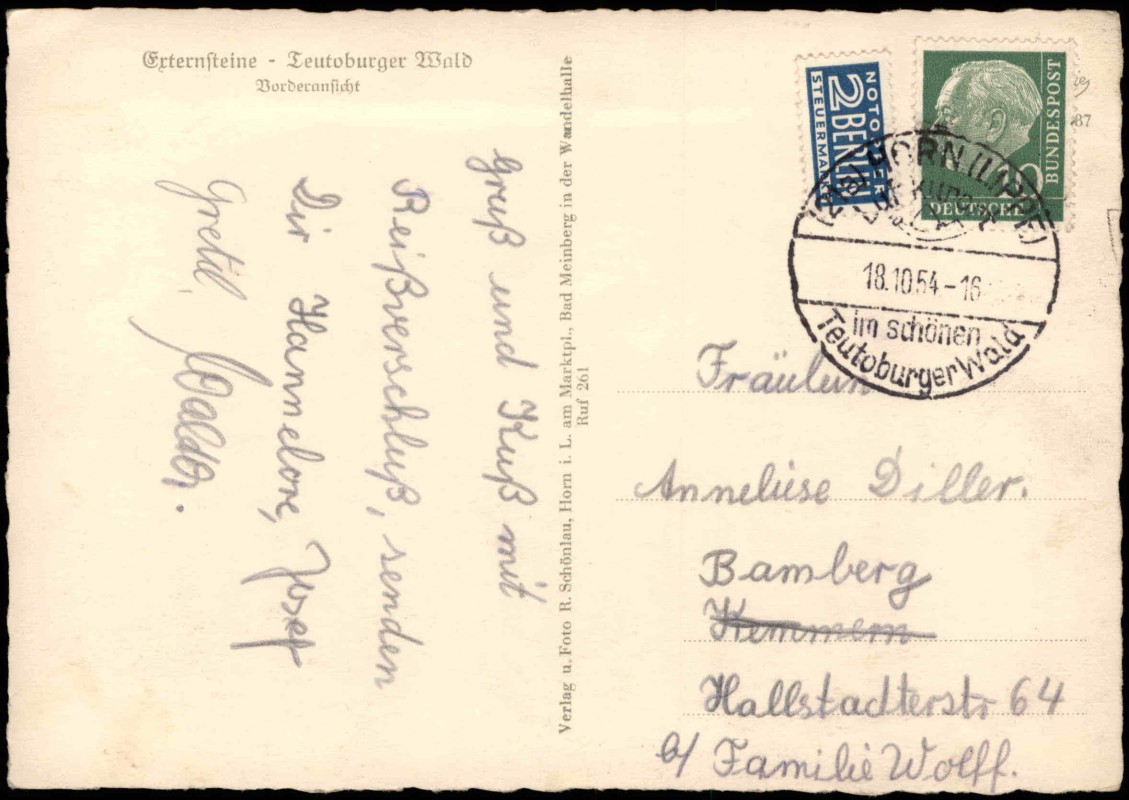 Externsteine - Teutoburger Wald
Vorderansicht
Gruß und Kuß mit
Reißverschluß, senden
Dir Hannelore, Josef
Gretil, Waldtr.
Verlag u. Foto R. Schönlau, Horn i. L. am Marktpl., Bad Meinberg in der Wandelhalle
Ruf 261
NOTOPFER
2 BERLIN
STEUERMARKE
DEUTSCHE
BUNDESPOST
10
(21a) HORN (LIPPE)
18.10.54-16
im schönen
Teutoburger Wald
87
Fräulein
Anneliese Diller.
Bamberg
Kemmern
Hallstadterstr 64
b/ Familie Wolff.